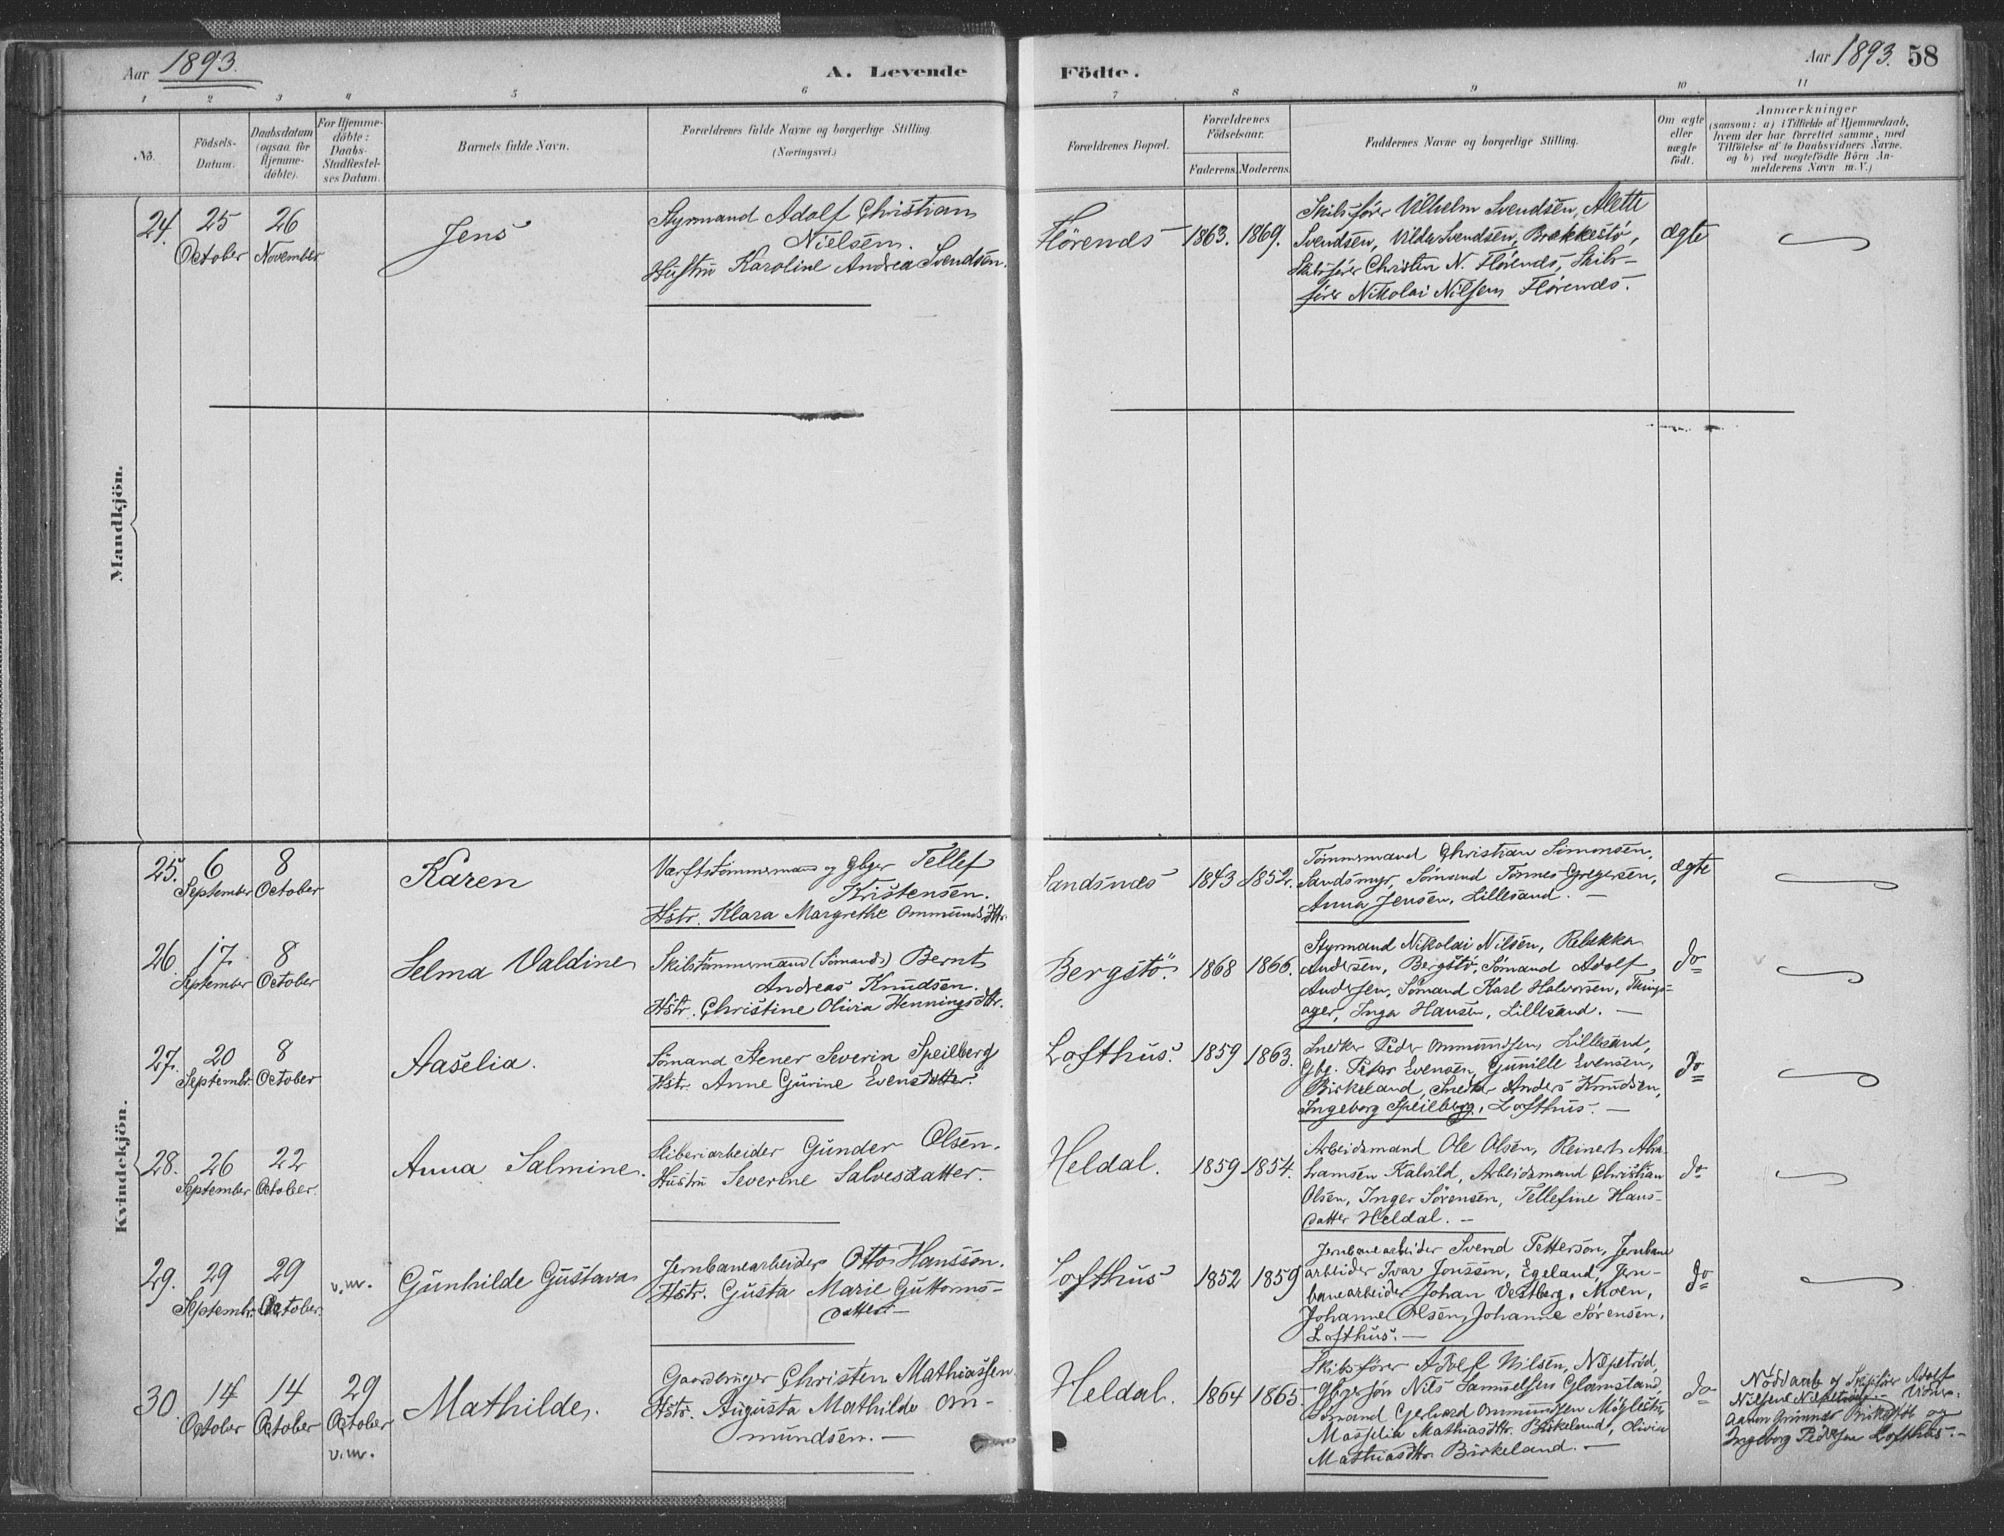 Aar 1893.
A. Levende
Födte.
Aar 1893. 58
1 2 3 4 5 6 7 8 9 10 11
No.
Födsels-
Datum.
Daabsdatum
(ogsaa for
Hjemme-
döbte).
For Hjemme-
döbte:
Daabs-
Stadfæstel-
ses Datum.
Barnets fulde Navn.
Forældrenes fulde Navne og borgerlige Stilling.
(Næringsvei.)
Forældrenes Bopæl.
Forældrenes
Födselsaar.
Faderens. Moderens.
Faddernes Navne og borgerlige Stilling.
Om ægte
eller
uægte
födt.
Anmærkninger
(saasom: a) i Tilfælde af Hjemmedaab,
hvem der har forrettet samme, med
Tilföielse af to Daabsvidners Navne,
og b) ved uægtefödte Börn An-
melderens Navn m. V.)
Mandkjön.
24.
25
October
26
November
Jens
Styrmand Adolf Christian
Nielsen.
Hustru Karoline Andrea Svendsen.
Flørends
1863. 1869.
Skibsfører Vilhelm Svendsen, Alette
Svendsen, Vilda Svendsen, Brekkestø,
Skibsfører Christen N. Flørends, Skibs-
fører Nikolai Nilsen Flørends.
ægte
Kvindekjön.
25.
6
September
8
October
Karen
Værftstømmermand og Gbger Tellef
Kristensen.
Hstr. Klara Margrethe Ommundsdtr.
Sandsnæs
1843 1852.
Tømmermand Christian Simonsen,
Sandsmyr, Sømand Tønnes Gregersen,
Anna Jensen, Lillesand. —
ægte
26
17
September
8
October
Selma Valdine
Skibstømmermand (Sømand) Bernt
Andreas Knudsen.
Hstr. Christine Olivia Henningsdtr.
Bergstö.
1868 1866.
Styrmand Nikolai Nilsen, Rebekka
Andersen, Bergstø, Sømand Adolf
Andersen, Sømand Karl Halvorsen, Tings-
ager, Inga Hansen, Lillesand. —
do
27.
20
Septembr.
8
October
Aaselia.
Sömand Stener Severin Speilberg
Hstr. Anne Gurine Evensdatter.
Lofthus.
1859 1863.
Snedker Peder Ommundsen Lillesand,
Gbg. Peter Evensen, Gunille Evensen,
Birkeland, Snedker Anders Knudsen,
Ingeborg Speilberg, Lofthus. —
do
28.
26
September
22
October
Anna Salmine.
Sliberiarbeider Gunder Olsen.
Hustru Severine Salvesdatter.
Heldal.
1859 1854.
Arbeidsmand Ole Olsen, Reinert Abra-
hamsen Kalvild, Arbeidsmand Christian
Olsen, Inger Sørensen, Tellefine Hans-
datter Heldal. —
do
29.
29
Septembr.
29
October
v.m.
Gunhilde Gustava
Jernbanearbeider Otto Hansson.
Hstr. Gusta Marie Guttorms-
datter. —
Lofthus
1852 1859
Jernbanearbeider Svend Petterson, Jernbane
arbeider Ivar Jonsson, Egeland, Jern-
banearbeider Johan Vestberg, Moen,
Johanne Olsen, Johanne Sørensen,
Lofthus. —
do
30.
14
October
14
October
29
October
v.m.
Mathilde.
Gaardbruger Christen Mathiassen
Hstr. Augusta Mathilde Om-
mundsen. —
Heldal.
1864 1865
Skibsfører Adolf Nilsen, Næpetrød,
Gbgersøn Nils Samuelsen Glamsland,
Sømand Gerhard Ommundsen Møglestu
Masselia Mathiasdtr. Birkeland, Olivia
Mathiasdtr. Birkeland. —
do
Nöddaab af Skibsför Adolf
Nilsen Næpetröd — Vidner:
Aanon Gunner Birkeföt og
Ingeborg Pedersen Lofthus. —